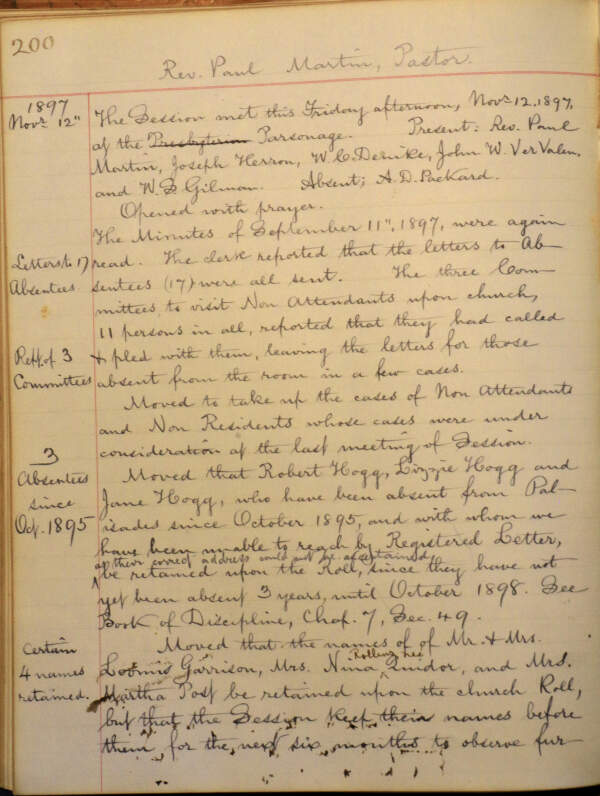 200
Rev. Paul Martin, Pastor.
1897
Novr. 12"
The Session met this Friday afternoon, Novr. 12, 1897,
at the Presbyterian Parsonage. Present: Rev. Paul
Martin, Joseph Herron, W. C. Dernike, John W. Ver Valen,
and W. S. Gilman. Absent; A. D. Packard.
Opened with prayer.
The Minutes of September 11", 1897, were again
Letters to 17
Absentees
read. The clerk reported that the letters to Ab-
sentees (17) were all sent. The three Com-
mittees to visit Non Attendants upon church,
11 persons in all, reported that they had called
Rept. of 3
Committees
& pled with them, leaving the letters for those
absent from the room in a few cases.
Moved to take up the cases of Non Attendants
and Non Residents whose cases were under
consideration at the last meeting of Session.
3
Absentees
since
Oct. 1895
Moved that Robert Hogg, Lizzie Hogg and
Jane Hogg, who have been absent from Pal-
isades since October 1895, and with whom we
have been unable to reach by Registered Letter,
as their correct address could not be ascertained,
be retained upon the Roll, since they have not
yet been absent 3 years, until October 1898. See
Book of Discipline, Chap. 7, Sec. 49.
Certain
4 names
retained.
Moved that the names of of Mr. & Mrs.
Loomis Garrison, Mrs. Nina Quidor, and Mrs.
Martha Post be retained upon the church Roll,
but that the Session keep their names before
them for the next six months to observe fur-